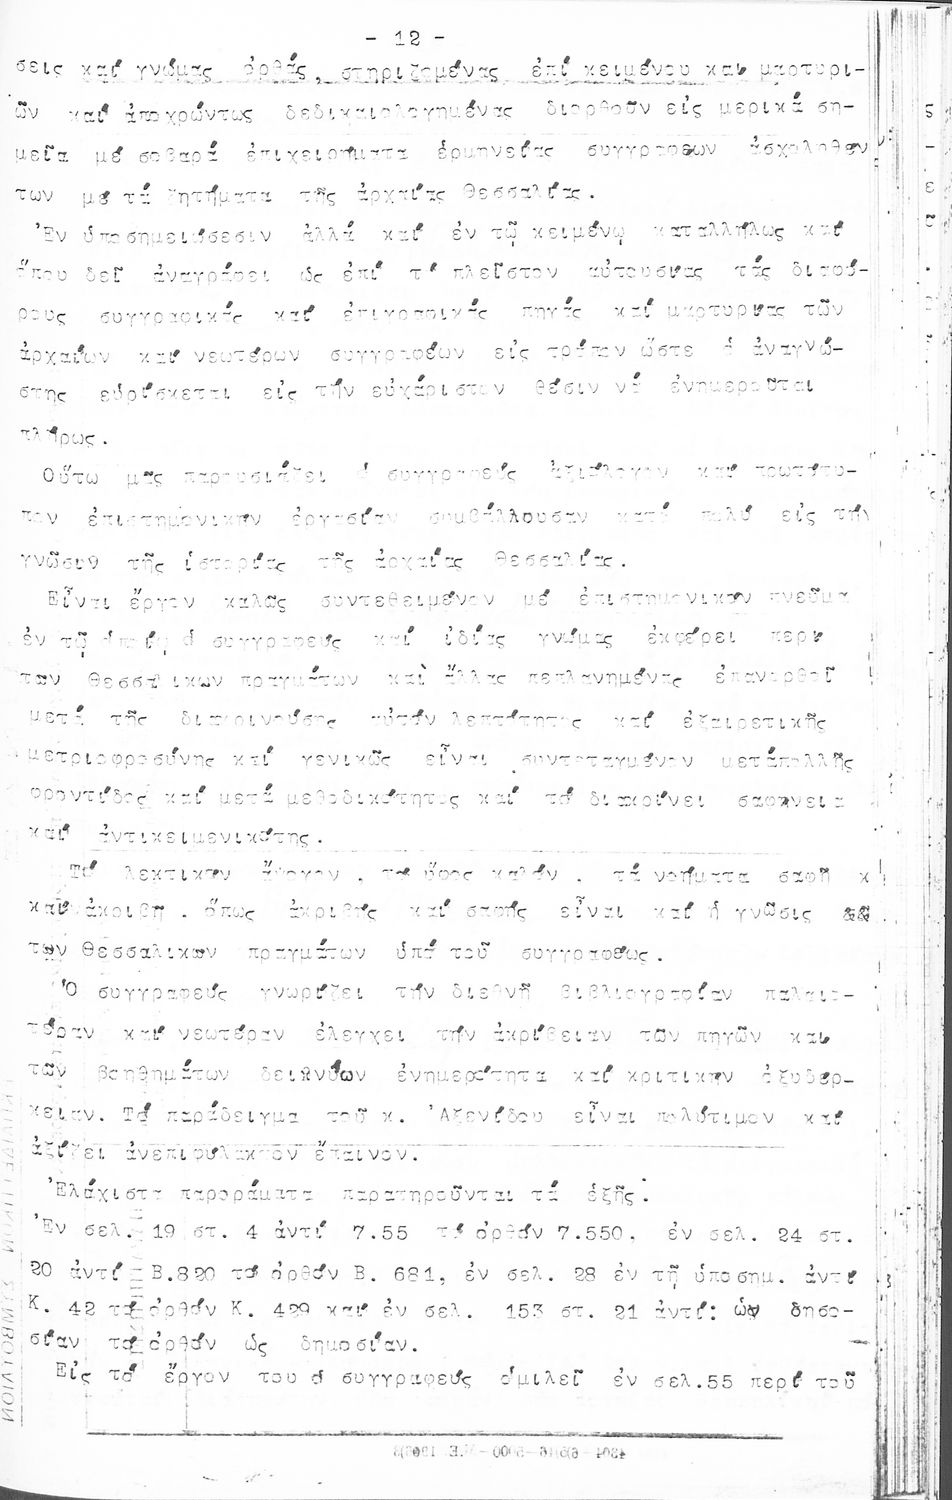 - 12 -
σεις καί γνώμας ὀρθάς, στηριζομένας ἐπί κειμένου και μαρτυρι-
ῶν καί ἀποχρώντως δεδικαιολογημένας διορθοῦν εἰς μερικά ση-
μεῖα μέ σοβαρά ἐπιχειρήματα ἑρμηνείας συγγραφέων ἀσχοληθέν
των με τά ζητήματα τῆς ἀρχαίας Θεσσαλίας.
Ἐν ὑποσημειώσεσιν ἀλλά καί ἐν τῷ κειμένῳ καταλλήλως καί
ὅπου δεῖ ἀναγράφει ὡς ἐπί τό πλεῖστον αὐτουσίας τάς διαφό-
ρους συγγραφικάς καί ἐπιγραφικάς πηγάς καί μαρτυρίας τῶν
ἀρχαίων καί νεωτέρων συγγραφέων εἰς τρόπον ὥστε ὁ ἀναγνώ-
στης εὑρίσκεται εἰς τήν εὐχάριστον θέσιν νά ἐνημεροῦται
πλήρως.
Οὕτω μᾶς παρουσιάζει ὁ συγγραφεύς ἀξιόλογον καί πρωτότυ-
πον ἐπιστημονικήν ἐργασίαν συμβάλλουσαν κατά πολύ εἰς τήν
γνῶσιν τῆς ἱστορίας τῆς ἀρχαίας Θεσσαλίας.
Εἶναι ἔργον καλῶς συντεθειμένον μέ ἐπιστημονικόν πνεῦμα
ἐν τῷ ὁποίῳ ὁ συγγραφεύς καί ἰδίας γνώμας ἐκφέρει περί
των Θεσσαλικων πραγμάτων καὶ ἄλλας πεπλανημένας ἐπανορθοῖ
μετά τῆς διακρινούσης αὐτόν λεπτότητος καί ἐξαιρετικῆς
μετριοφροσύνης καί γενικῶς εἶναι συντεταγμένον μετάπολλῆς
φροντίδος καί μετά μεθοδικότητος καί τό διακρίνει σαφήνεια
καί ἀντικειμενικότης.
Τό λεκτικόν ἄψογον, τό ὕφος καλόν, τά νοήματα σαφῆ κ
καί ἀκριβῆ, ὅπως ἀκριβής καί σαφής εἶναι καί ἡ γνῶσις
τῶν Θεσσαλικῶν πραγμάτων ὑπό τοῦ συγγραφέως.
Ὁ συγγραφεύς γνωρίζει τήν διεθνῆ βιβλιογραφίαν παλαιο-
τέραν καί νεωτέραν ἐλέγχει τήν ἀκρίβειαν τῶν πηγῶν και
τῶν βοηθημάτων δεικνύων ἐνημερότητα καί κριτικήν ὀξυδέρ-
κειαν. Τό παράδειγμα τοῦ κ. Ἀξενίδου εἶναι πολύτιμον καί
ἀξίζει ἀνεπιφύλακτον ἔπαινον.
Ἐλάχιστα παροράματα παρατηροῦνται τά ἑξῆς:
Ἐν σελ. 19 στ. 4 ἀντί 7.55 τό ὀρθόν 7.550, ἐν σελ. 24 στ.
20 ἀντί Β.820 τό ὀρθόν Β. 681, ἐν σελ. 28 ἐν τῇ ὑποσημ. ἀντί
Κ. 42 τό ὀρθόν Κ. 429 καί ἐν σελ. 153 στ. 21 ἀντί: ὡς δησο-
σίαν τό ὀρθόν ὡς δημοσίαν.
Εἰς τό ἔργον του ὁ συγγραφεύς ὁμιλεῖ ἐν σελ.55 περί τοῦ